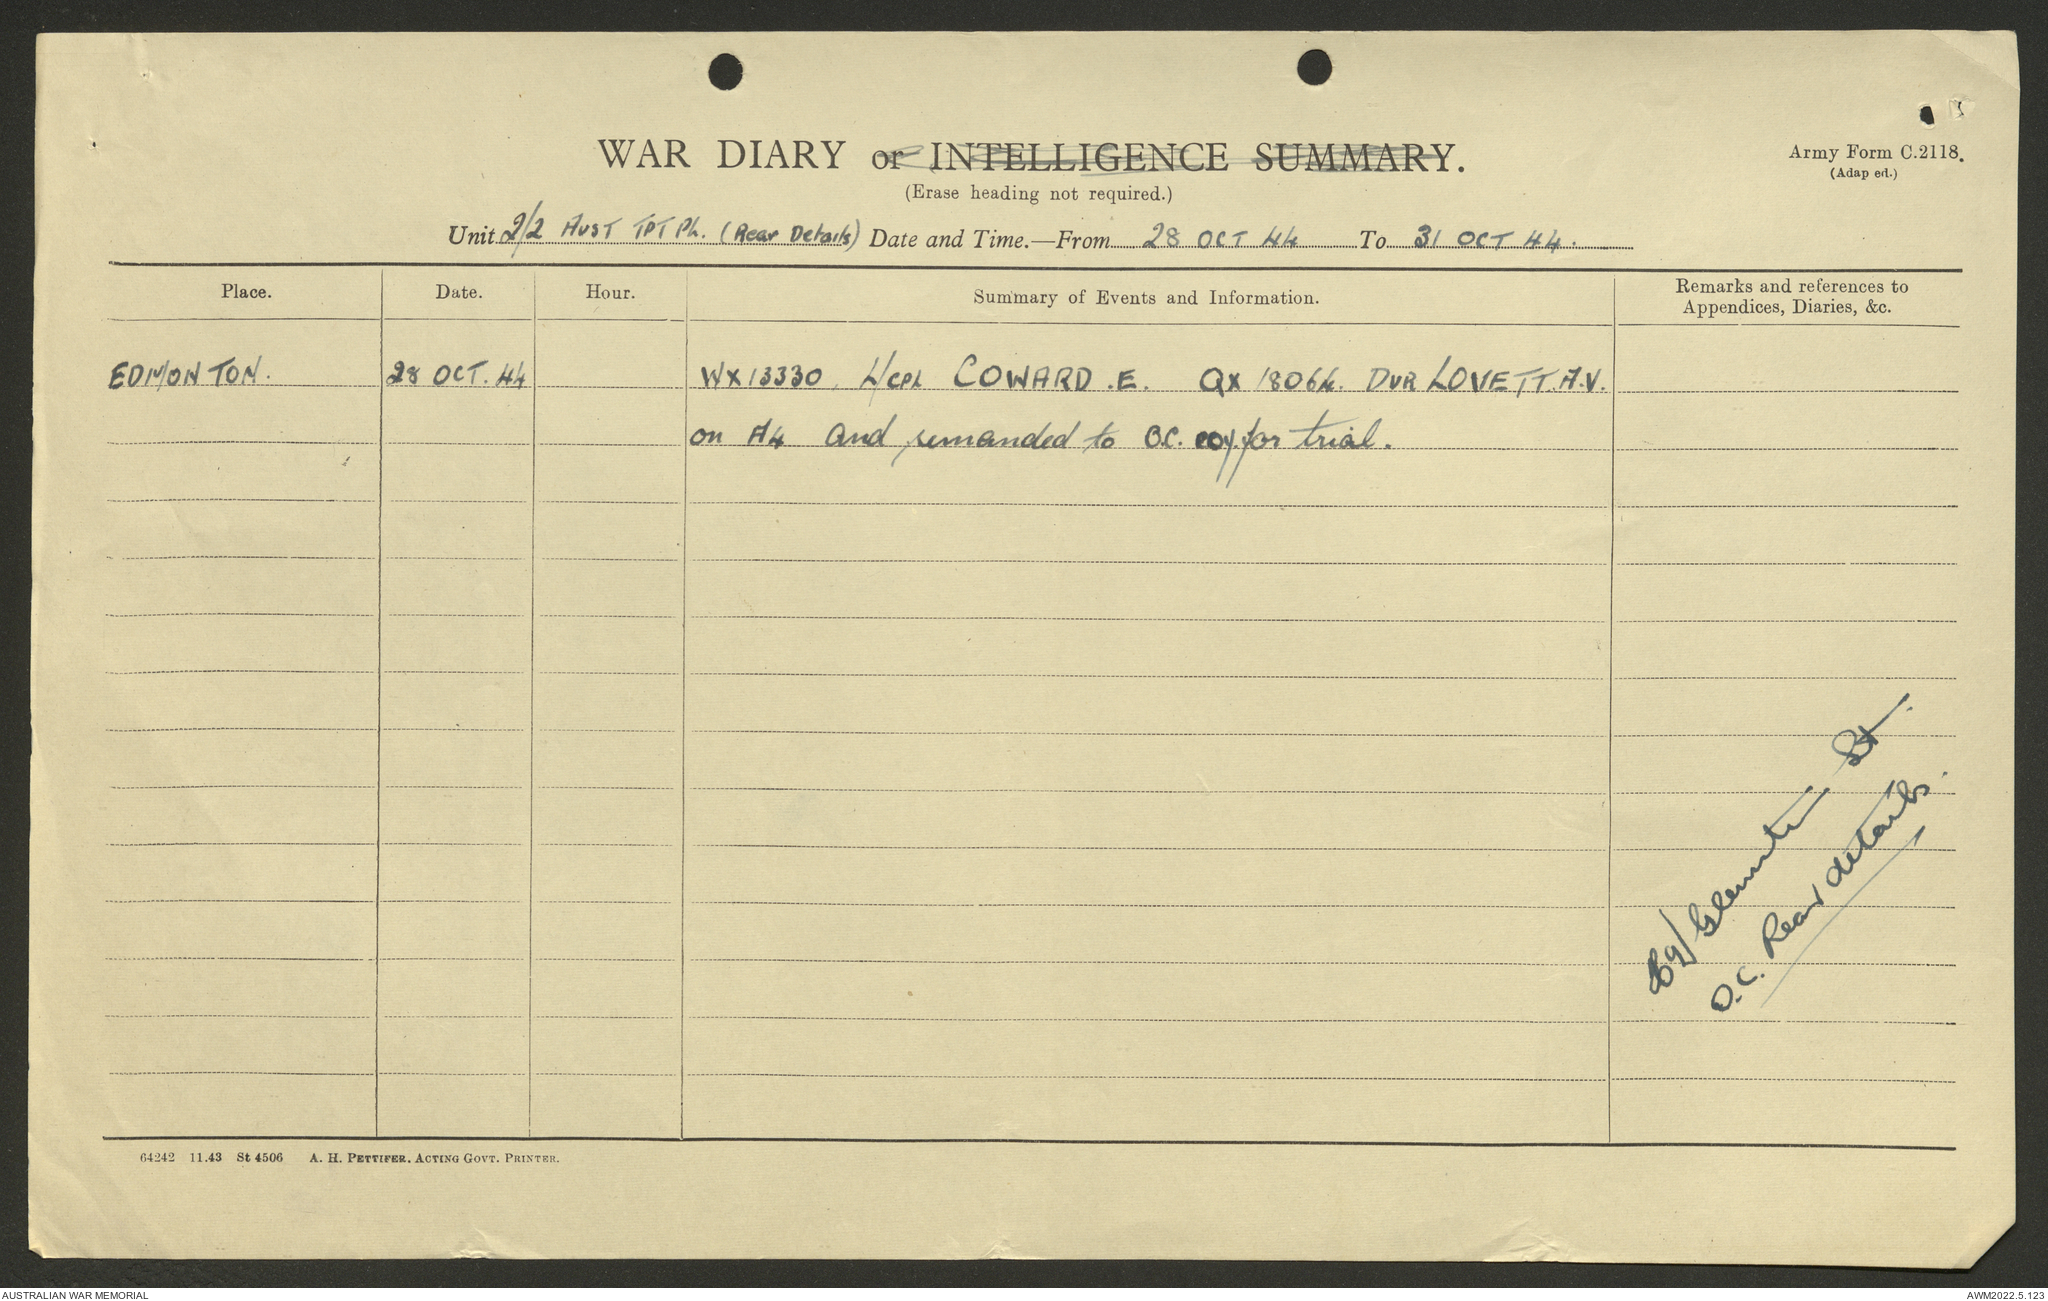 WAR DIARY or INTELLIGENCE SUMMARY.
(Erase heading not required.)
Army Form C.2118.
(Adap ed.)
Unit 2/2 AUST TPT Pl. (Rear Details) Date and Time.—From 28 OCT 44 To 31 OCT 44.
Place. Date. Hour. Summary of Events and Information. Remarks and references to
Appendices, Diaries, &c.
EDMONTON. 28 OCT. 44 WX13330 L/CPL COWARD .E. QX 18064. DVR LOVETT. A.V.
on A4 and remanded to O.C. coy. for trial.
Lt.
O.C. Rear details.
64242 11.43 St 4506 A. H. PETTIFER, ACTING GOVT. PRINTER.
AUSTRALIAN WAR MEMORIAL
AWM2022.5.123